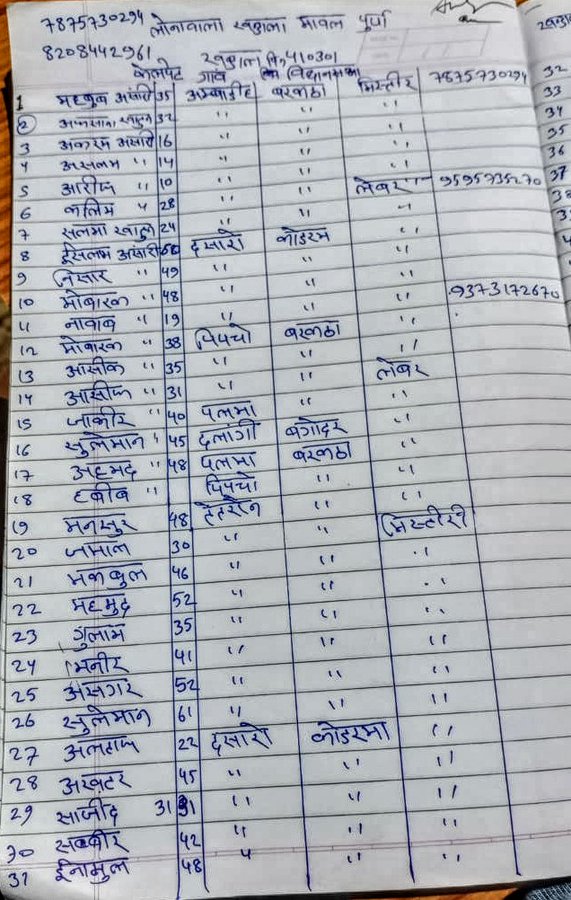 7875730294 लोनावाला खण्डाला मावल पुर्णा
8208442961 खण्डाला पिन 410301
गाव विधानसभा
1 महबुब अंसारी 35 अम्बाडीह बरकठा मिस्त्री 7875730294
2 अफसाना खातुन 32 " " "
3 अकरम अंसारी 16 " " "
4 असलम " 14 " " "
5 आरीफ " 10 " " लेबर 9595735270
6 कलिम " 28 " " "
7 सलमा खातुन 24 " " "
8 ईसलम अंसारी दसारो कोडरमा "
9 निसार " 49 " " "
10 मोबारक " 48 " " " 9373172670
11 नावाब " 19 " " "
12 मोबारक " 38 पिपचो बरकठा "
13 आसीक " 35 " " लेबर
14 आसीफ " 31 " " "
15 जाकीर " 40 पलमा " "
16 सुलेमान " 45 दलांगी बगोदर "
17 अहमद " 48 पलमा बरकठा "
18 हबीब " पिपचो " "
19 मनसुर 48 हेतरोन " मिस्तीरी
20 जमाल 30 " " "
21 मकबुल 46 " " "
22 महमुद 52 " " "
23 गुलाम 35 " " "
24 मनीर 41 " " "
25 असगर 52 " " "
26 सुलेमान 61 " " "
27 अलताफ 22 दसारो कोडरमा "
28 अखतर 45 " " "
29 साजीद 31 31 " " "
30 सब्बीर 42 " " "
31 ईनामुल 48 " " "
32
33
34
35
36
37